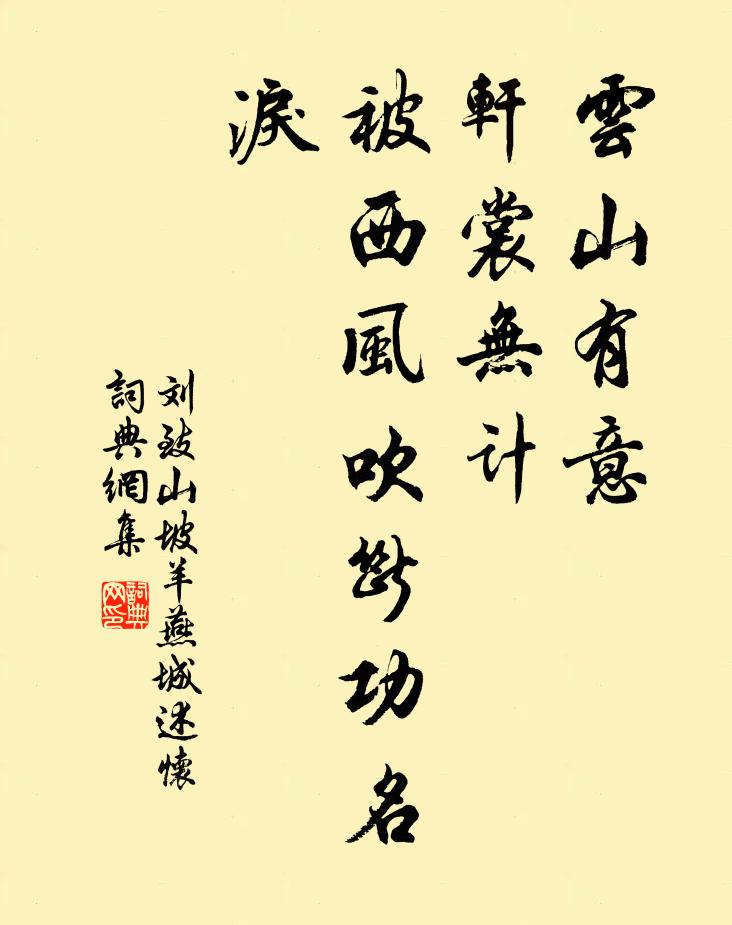 雲山有意
軒裳無計
被西風吹斷功名
淚
刘致山坡羊燕城述懷
詞典網集
詞典
网印